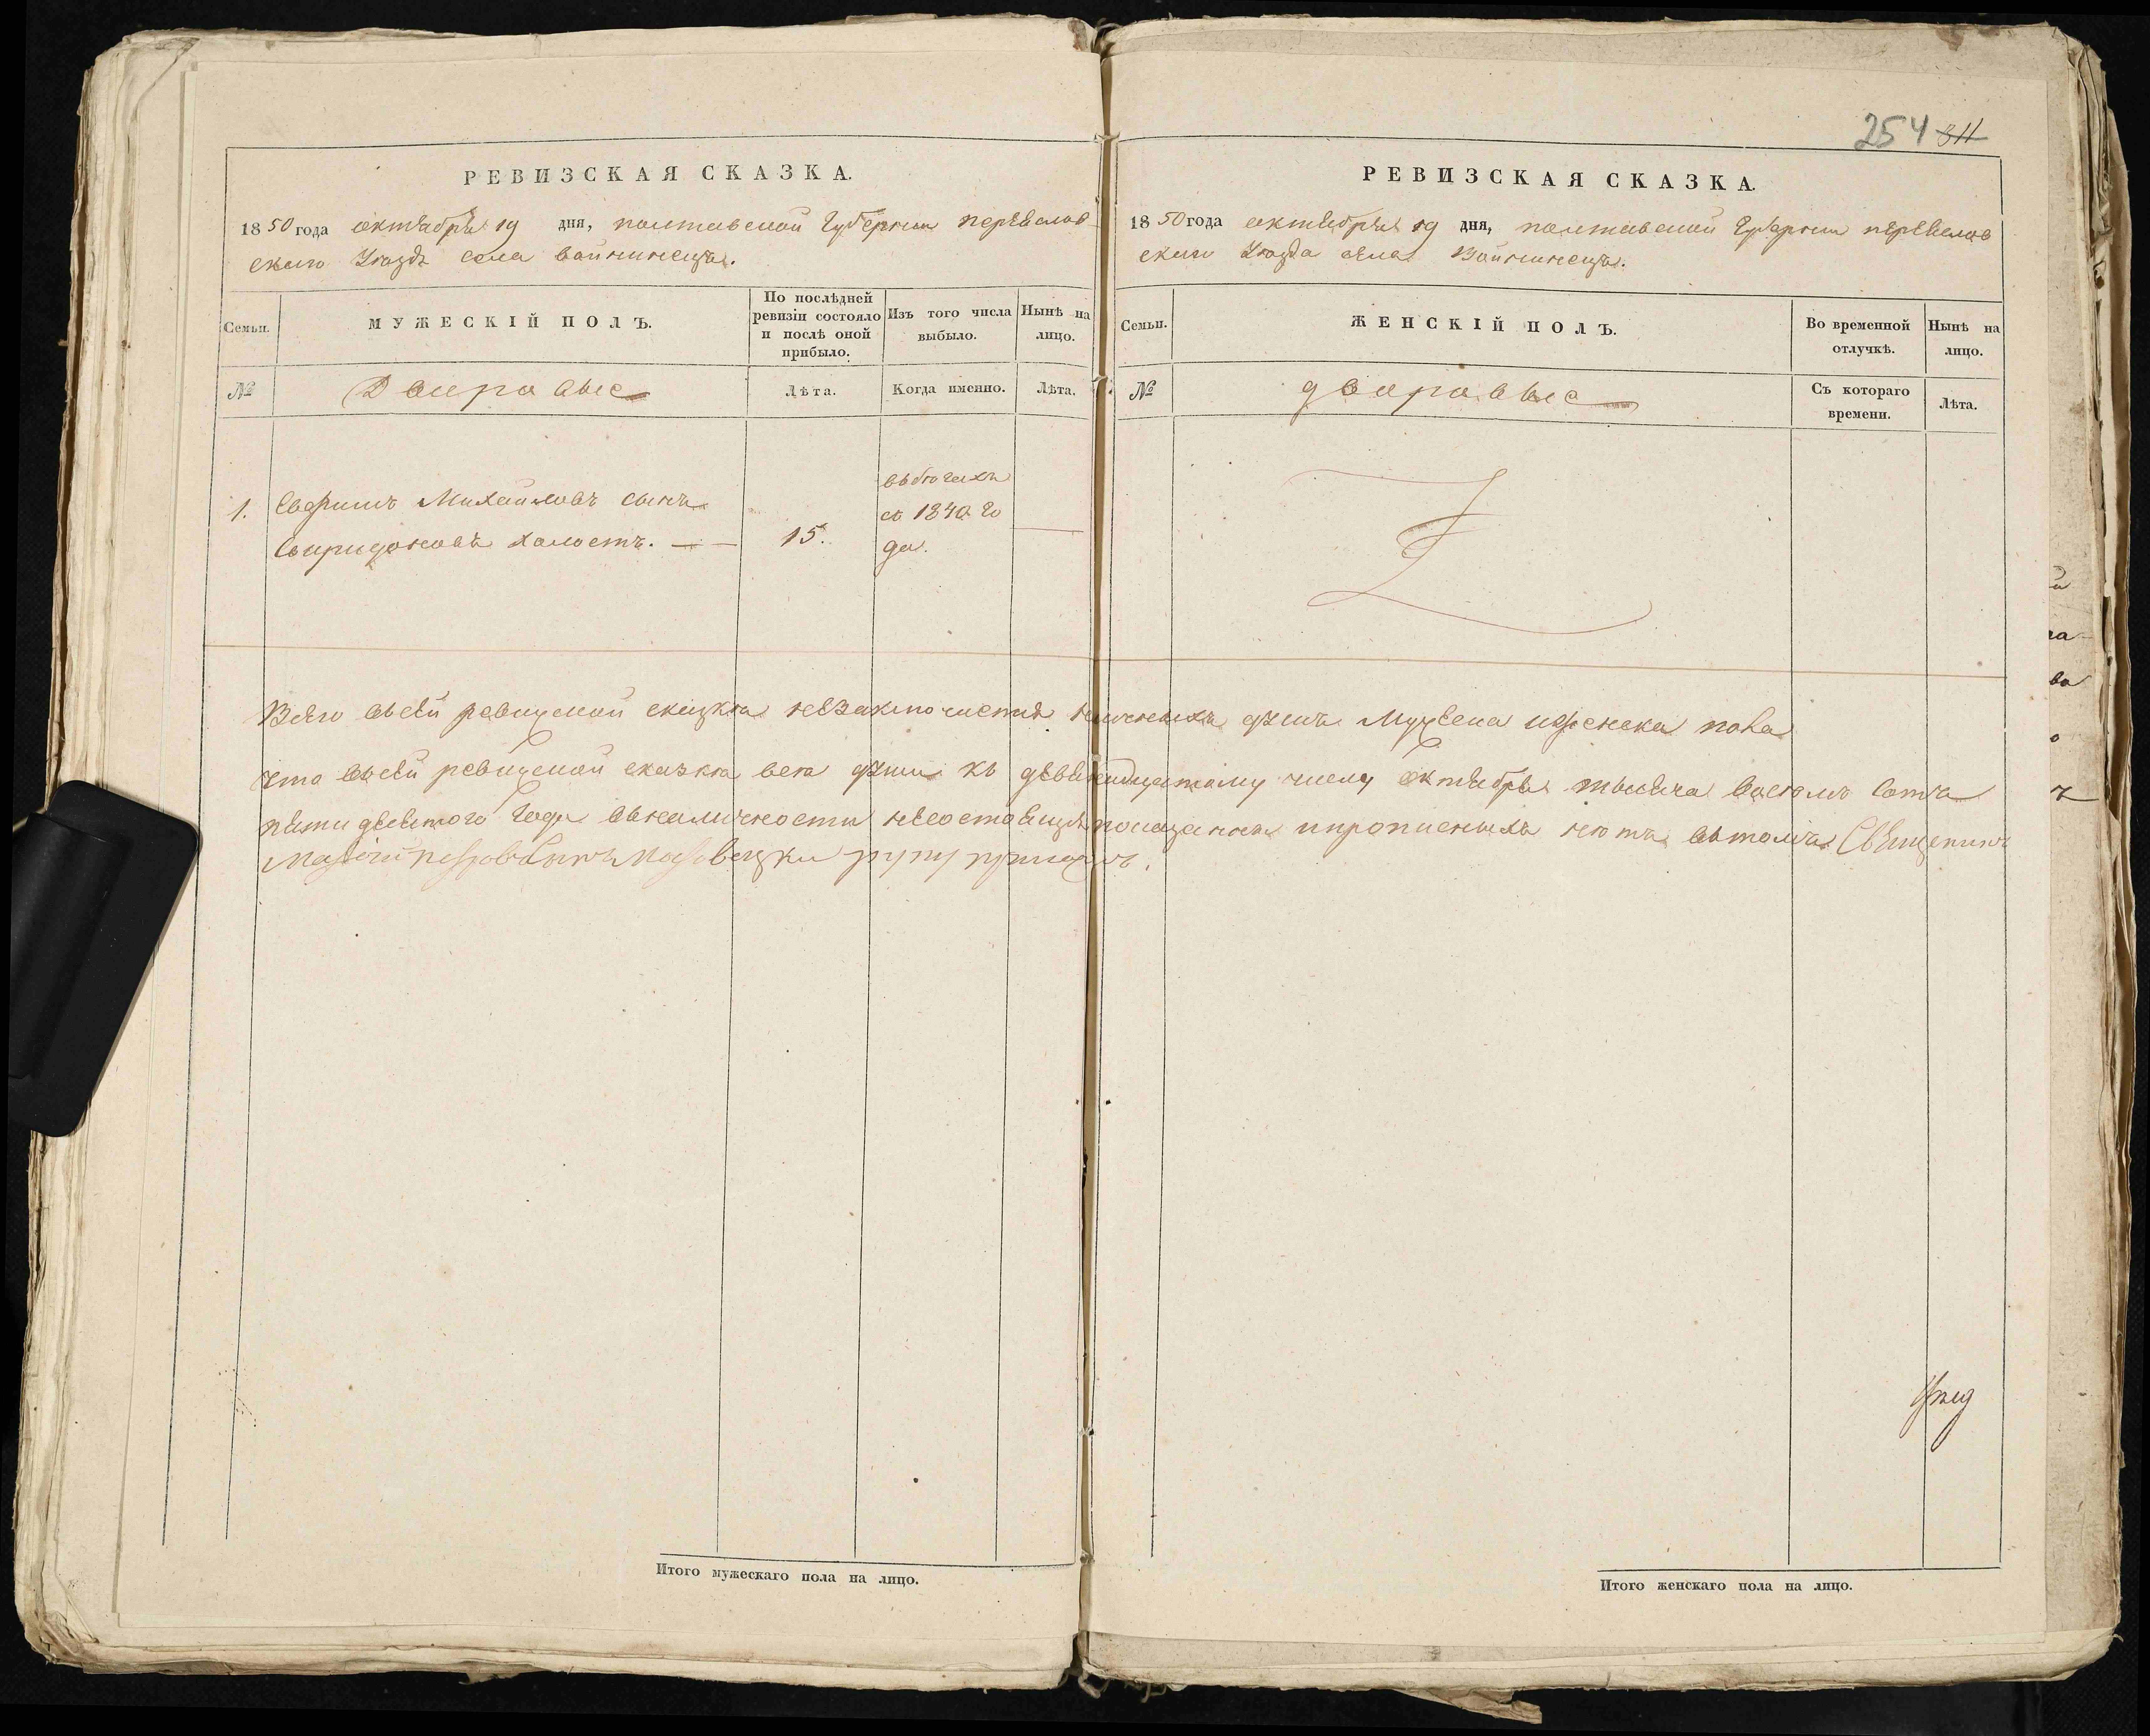 254 311
РЕВИЗСКАЯ СКАЗКА.
1850 года октября 19 дня, полтавской Губернии переяслов
скаго Уезда села войнинецъ.
Семьи.
МУЖЕСКІЙ ПОЛЪ.
По послѣдней ревизіи состояло и послѣ оной прибыло.
Изъ того числа выбыло.
Нынѣ на лицо.
№
Дворовые
Лѣта.
Когда именно.
Лѣта.
1. Ефримъ Михайловъ сынъ
Спиридоновъ холостъ. — 15. въ бегахъ
съ 1840 го
да.
РЕВИЗСКАЯ СКАЗКА.
1850 года октября 19 дня, полтавской Губернии переяслов
скаго Уезда села Войнинецъ.
Семьи.
ЖЕНСКІЙ ПОЛЪ.
Во временной отлучкѣ.
Нынѣ на лицо.
№
дворовые
Съ котораго времени.
Лѣта.
Всего в сей ревизской сказки незаключается наличныхъ душъ Мужеска иженска пола
что в сей ревизской сказки все души къ девятнадцатому числу октября тысяча восемь сотъ
пятидесятого Года вналичности несостоящия показаны ипрописныхъ нетъ втомъ Священикъ
руку приложилъ.
Итого мужескаго пола на лицо.
Итого женскаго пола на лицо.